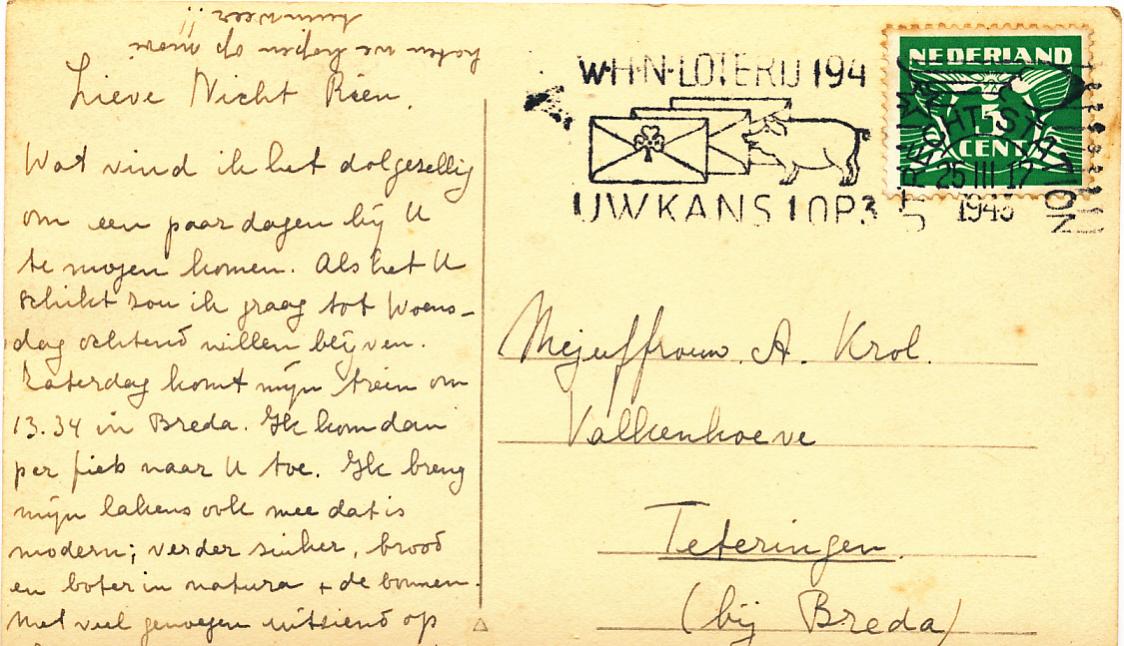 Lieve Nicht Rien.
Wat vind ik het dolgezellig
om een paar dagen bij U
te mogen komen. Als het U
schikt zou ik graag tot Woens-
dag ochtend willen blijven.
Zaterdag komt mijn trein om
13.34 in Breda. Ik kom dan
per fiets naar U toe. Ik breng
mijn lakens ook mee dat is
modern; verder suiker, brood
en boter in natura + de bonnen.
Met veel genoegen uitziend op
hopen we op mooi
weer!!
W·H·N·LOTERIJ 194
UW KANS 1 OP 3
NEDERLAND
5
CENT
UTRECHT STATION
25 III 17
1943
Mejuffrouw. A. Krol.
Valkenhoeve
Teteringen.
(bij Breda)